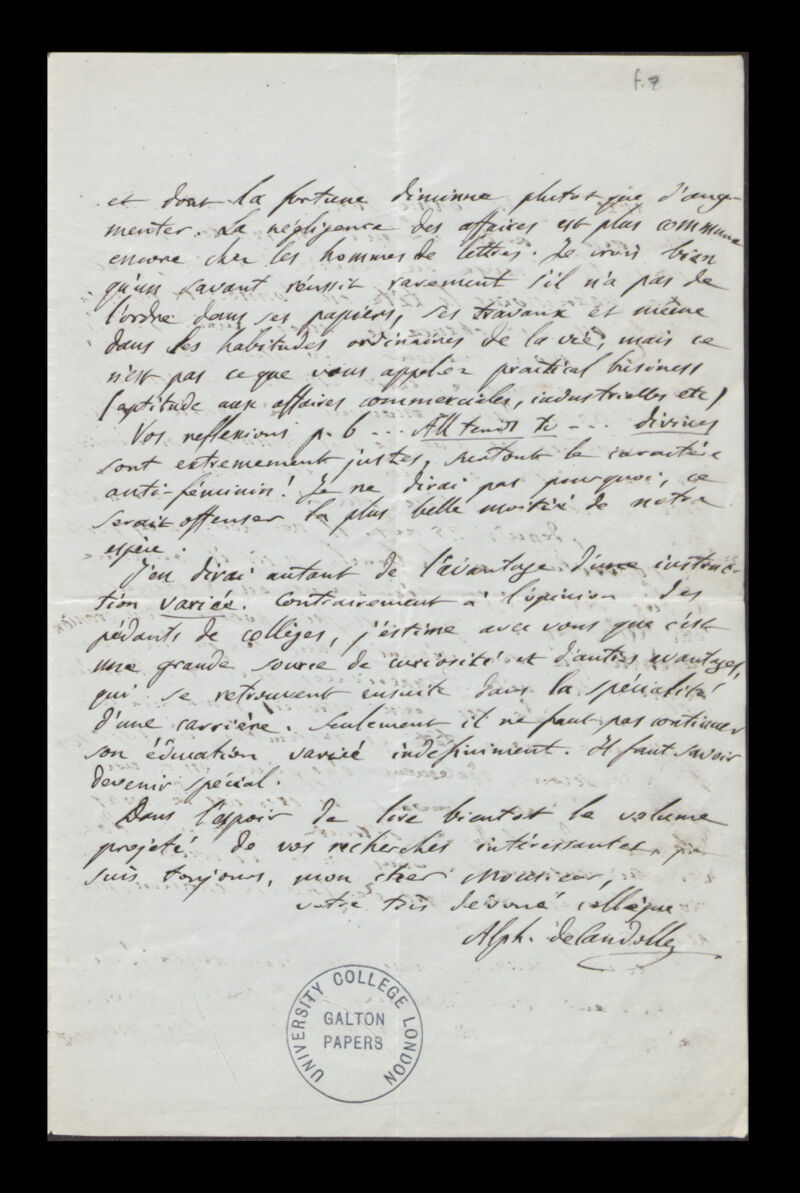 f.7
et dont la fortune diminue plutot que d'aug-
menter. La négligence des affaires est plus commune
encore chez les hommes de lettres. Je crois bien
qu'un savant réussit rarement s'il n'a pas de
l'ordre dans ses papiers, ses travaux et même
dans les habitudes ordinaires de la vie, mais ce
n'est pas ce que vous appelez practical business
(aptitude aux affaires commerciales, industrielles etc)
Vos reflexions p. 6 -.. All tends to -... divines
sont extremement justes, surtout le caractère
anti-féminin! Je ne dirai pas pourquoi, ce
serait offenser la plus belle moitié de notre
espèce.
J'en dirai autant de l'avantage d'une instruc-
tion variée. Contrairement à l'opinion des
pédants de collèges, j'estime avec vous que c'est
une grande source de curiosité et d'autres avantages,
qui se retrouvent ensuite dans la spécialité
d'une carrière. Seulement il ne faut pas continuer
son éducation variée indefiniment. Il faut savoir
devenir spécial.
Dans l'espoir de lire bientot le volume
projeté de vos recherches intéressantes, je
suis toujours, mon cher Monsieur,
votre très dévoué collègue
Alph. deCandolle
UNIVERSITY COLLEGE LONDON
GALTON
PAPERS